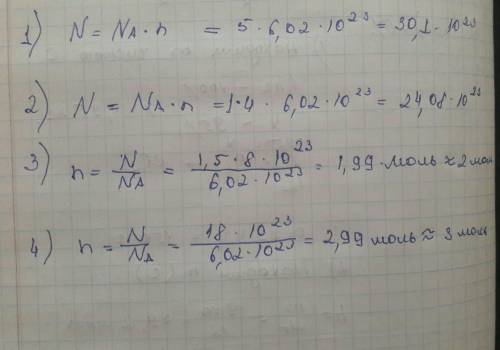 1) N = NА · n = 5 · 6,02 · 10²³ = 30,1 · 10²³
2) N = NА · n = 1 · 4 · 6,02 · 10²³ = 24,08 · 10²³
3) n = N/NА = 1,5 · 8 · 10²³/6,02 · 10²³ = 1,99 · моль ≈ 2 мол
4) n = N/NА = 18 · 10²³/6,02 · 10²³ = 2,99 моль ≈ 3 моль